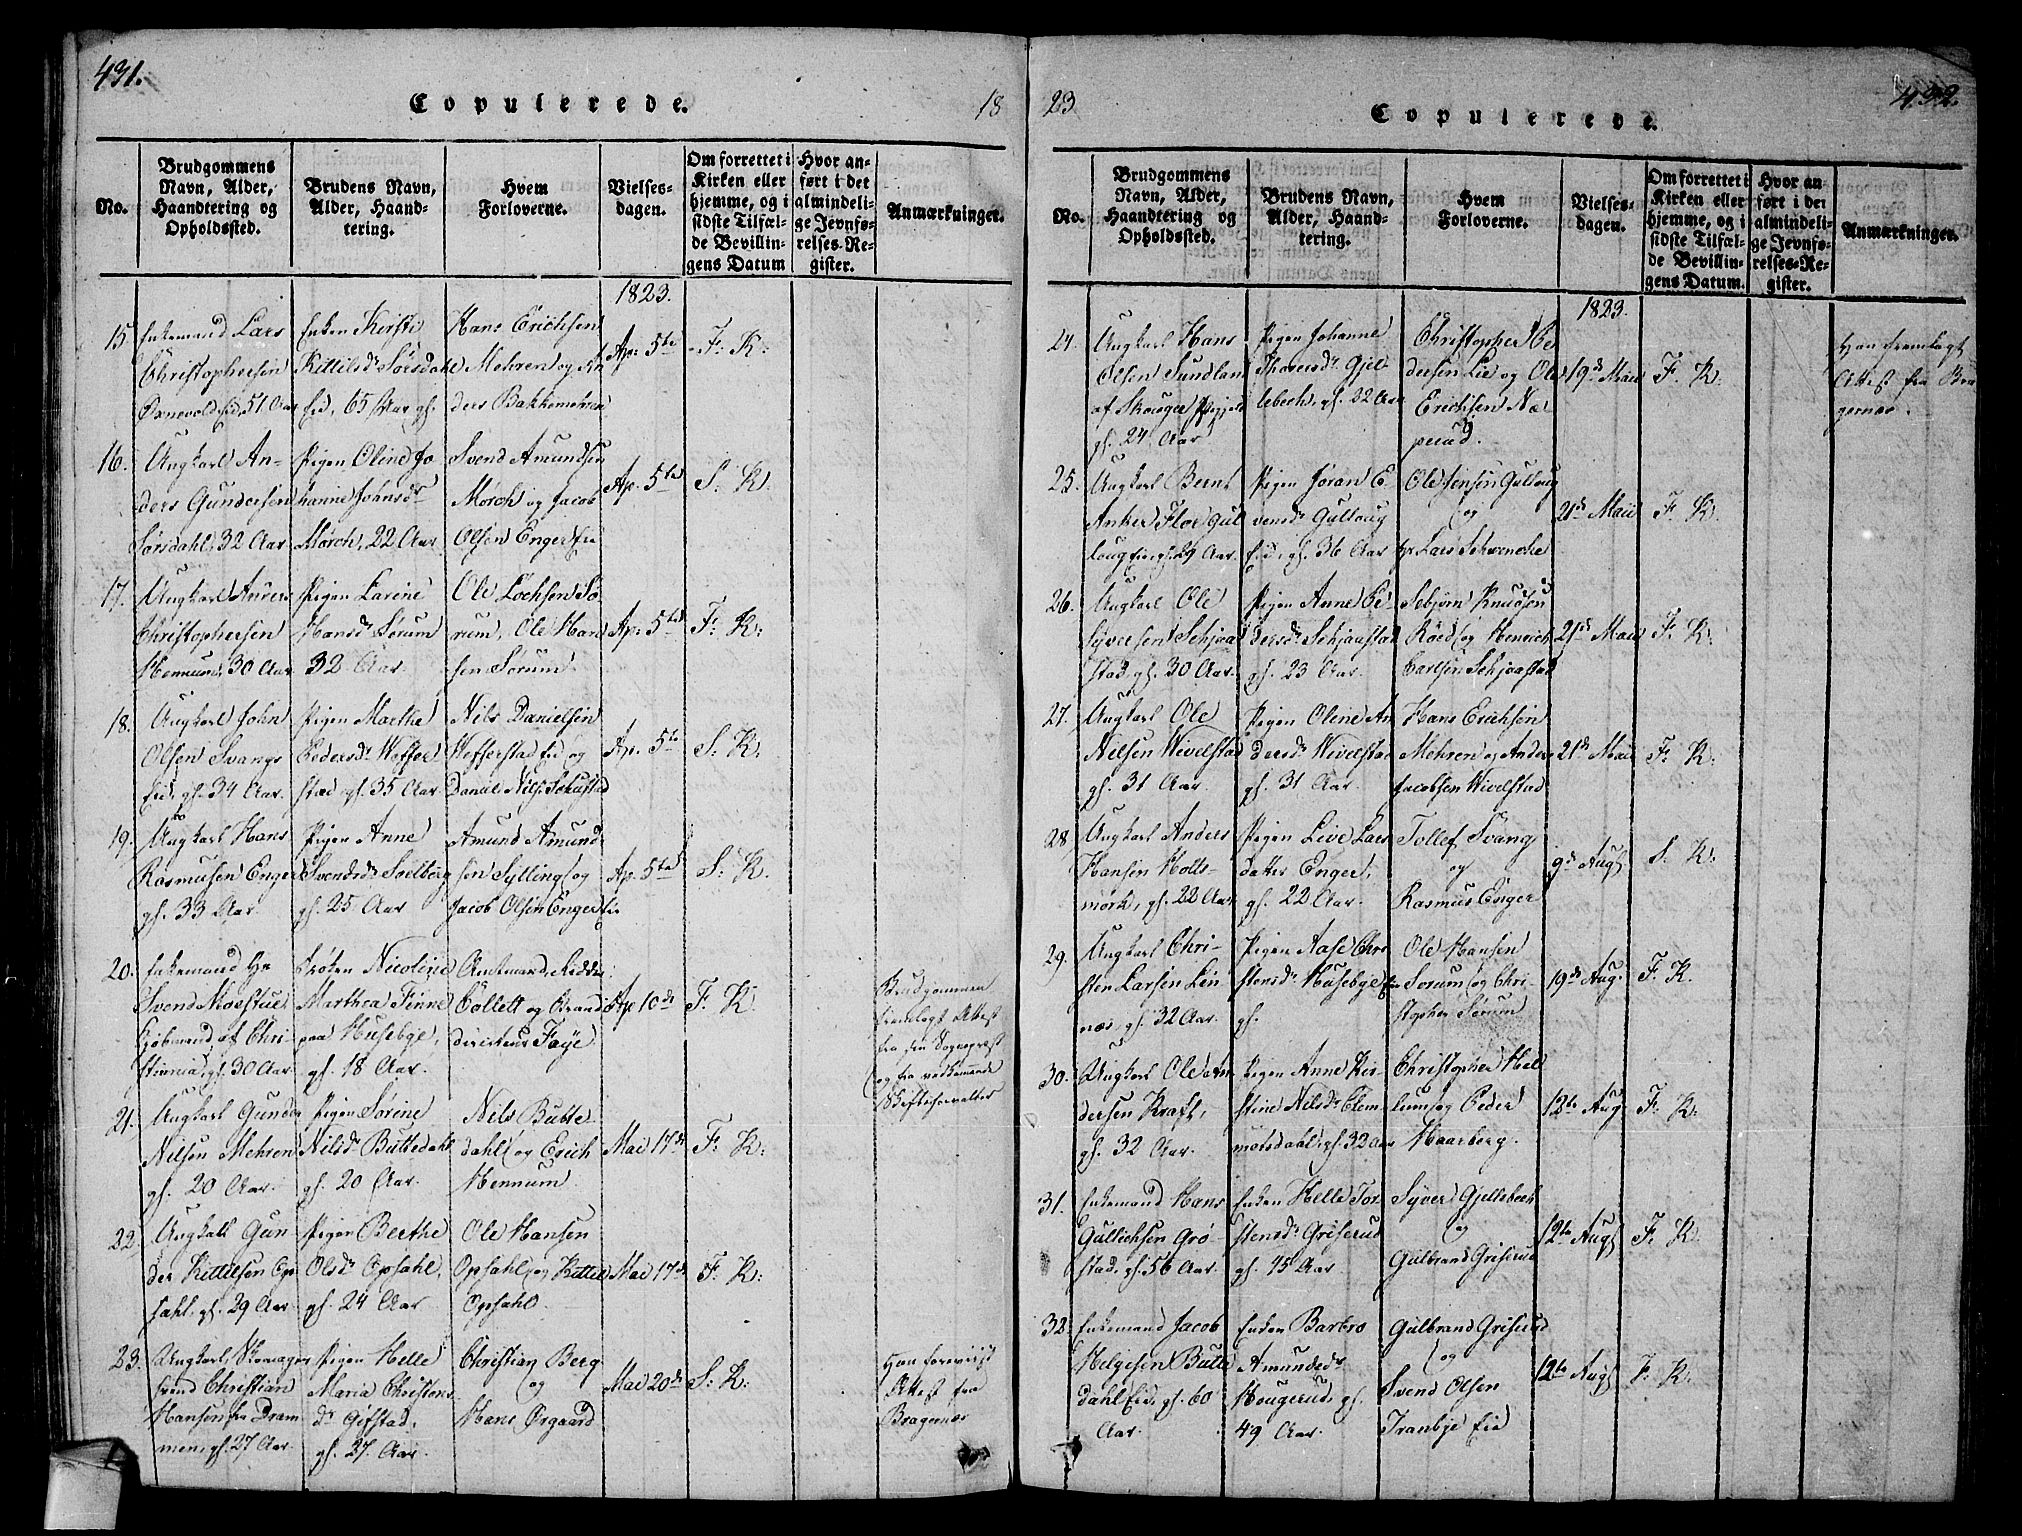 431.
Copulerede.
18
No.
Brudgommens
Navn, Alder,
Haandtering og
Opholdssted.
Brudens Navn,
Alder, Haand-
tering.
Hvem
Forloverne.
Vielses-
dagen.
Om forrettet i
Kirken eller
hjemme, og i
sidste Tilfæl-
de Bevillin-
gens Datum
Hvor an-
ført i det
almindeli-
ge Jevnfø-
relses-Re-
gister.
Anmærkninger.
1823.
15.
Enkemand Lars
Christophersen
Øxnevold Eid, 51 Aar
Enken Kirsti
Kittilsdr Sørsdahl
Eid, 65 Aar gl.
Hans Erichsen
Mehren og An
ders Bakkemehren
Ap: 5te
F: K:
16.
Ungkarl An-
ders Gundersen
Sørsdahl, 32 Aar
Pigen Oline Jo
hanne Johnsdr
Mørch, 22 Aar
Svend Amundsen
Mørch og Jacob
Olsen Enger Eie
Ap. 5te
S. K.
17.
Ungkarl
Christophersen
Hennum, 30 Aar
Pigen Larine
Hansdr Sørum
32 Aar.
Ole Lochsen Sø
rum, Ole Han
sen Sørum.
Ap: 5te
F: K:
18.
Ungkarl John
Olsen Svangs
Eid, gl. 34 Aar.
Pigen Marthe
Pedersdr Weffer
stad gl. 35 Aar
Nils Danielsen
Wefferstad Eid og
Daniel Nils.
Ap. 5te
S. K.
19.
Ungkarl Hans
Rasmusen Enger
gl. 33 Aar.
Pigen Anne
Svendsdr Solberg
gl. 25 Aar
Amund Amund
sen Sylling og
Jacob Olsen Enger Eie
Ap. 5te
S: K.
20.
Enkemand Hr
Svend Moestue
Kjøbmand af Chri
stiania, gl. 30 Aar
Frøken Nicoline
Marthea Finne
paa Husebye,
gl. 18 Aar.
Amtmand, Ridder
Collett og Brand
directeur Faye
Ap. 10de
F. K.
Brudgommen
fremlagt Attest
fra sin Sognepræst
og fra vedkommende
Skifteforvalter
21.
Ungkarl Gunder
Nilsen Mehren
gl. 20 Aar.
Pigen Sørine
Nilsdr Buttedahl
gl. 20 Aar.
Nils Butte
dahl og Erich
Hennum.
Mai 17de
F. K:
22.
Ungkall Gun
der Kittilsen Op
sahl, gl. 29 Aar
Pigen Berthe
Olsdr Opsahl,
gl. 24 Aar
Ole Hansen
Opsahl og Kittil
Opsahl
Mai 17de
F. K:
23.
Ungkarl, Skomager
svend Christian
Hansen fra Dram
men, gl. 27 Aar
Pigen Helle
Maria Christens
dr Gifstad,
gl. 27. Aar
Christian Berg
og
Hans Ørgaard
Mai 20de
S: K:
Han foreviist
Attest fra
Bragernæs
23
Copulerede.
432.
No.
Brudgommens
Navn, Alder,
Haandtering og
Opholdssted.
Brudens Navn,
Alder, Haand-
tering.
Hvem
Forloverne.
Vielses-
dagen.
Om forrettet i
Kirken eller
hjemme, og i
sidste Tilfæl-
de Bevillin-
gens Datum.
Hvor an-
ført i det
almindeli-
ge Jevnfø-
relses-Re-
gister.
Anmærkninger.
1823.
24.
Ungkarl Hans
Olsen Sundland
af Skouger
gl. 24 Aar
Pigen Johanne
Thoresdr Gjel-
lebech, gl. 22 Aar
Christopher Pe
dersen Lie og Ole
Erichsen Næ
perud.
19de Mai
F. K:
Han fremlagt
Attest fra Bra
gernæs.
25.
Ungkarl Bernt
Anker Flor Gul
loug Eie, gl. 29 Aar.
Pigen Jøran E
vensdr Gulloug
Eid, gl. 36 Aar
Ole Jensen Gulloug
og
Hr Lars Schwencke
21de Mai
F. K.
26.
Ungkarl Ole
Syversen Schjoad
stad, gl. 30 Aar.
Pigen Anne Pe-
dersdr Schjoastad
gl. 23 Aar.
Sebjørn Knudsen
Røed og Henrich
Carlsen Schjoastad
21de Mai
F: K:
27.
Ungkarl Ole
Nilsen Wivelstad
gl. 31 Aar.
Pigen Oline An
dersdr Wivelstad
gl. 31 Aar.
Hans Erichsen
Mehren og Anders
Jacobsen Wivelstad
21de Mai
F: K:
28.
Ungkarl Anders
Hansen Holts-
mørk, gl. 22 Aar.
Pigen Live Lars
datter Enger,
gl. 22 Aar.
Tollef Svang
og
Rasmus Enger
9de Augt
S. K:
29.
Ungkarl Chri-
sten Larsen Lin
næs, gl. 32 Aar.
Pigen Aase Chri
stensdr Husebye Eie
gl.
Ole Hansen
Sørum og Chri-
stopher Sørum
19de Aug.
F. K.
30.
Ungkarl Ole An
dersen Kraft,
gl. 32 Aar.
Pigen Anne Kir
stine Nilsdr Clem
metsdahl, gl. 32 Aar
Christopher Hel
lum og Peder
Haarberg.
12te Aug
F: K:
31.
Enkemand Hans
Gullichsen Grø-
stad, gl. 56 Aar.
Enken Helle Tor
stensdr Griserud
gl. 45 Aar
Syver Gjellebech
og
Gulbrand Griserud
12te Augt
F. K.
32.
Enkemand Jacob
Helgesen Butte
dahl Eid, gl. 60
Aar.
Enken Barbro
Amundsdr
Hougerud, gl.
49 Aar.
Gulbrand Griserud
og
Svend Olsen
Tranbye Eie
12te Augt
F. K.